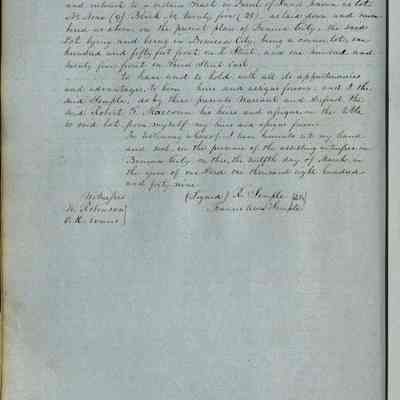 and interest to a certain Tract or Parcel of Land known as lot
No Nine (9) Block No twenty five (25) as laid down and num
bered as above on the present plan of Benicia City, the said
Lot lying and being in Benicia City, being a corner lot, one
hundred and fifty feet front on Street, and one hundred and
twenty five front on Third Street East
to have and to hold with all its appurtenances
and advantages, to him heirs and assigns forever. and I the
said Semple, do by these presents Warrant and defend the
said Robert F. his heirs and assigns in the title
to said lot from myself my heirs and assigns forever
In testimony whereof I have hereunto set my hand
and seal, in the presence of the assisting witnesses in
Benicia City on this, the twelfth day of March in
the year of our Lord one thousand eight hundred
and forty nine
Witnesses (Signed) R. Semple
W. Robinson Semple